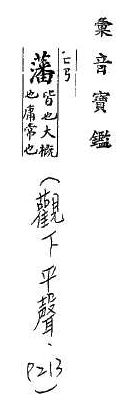 彙音寶鑑
藩
皆也大概
也庸常也
(觀下平聲.
P213)